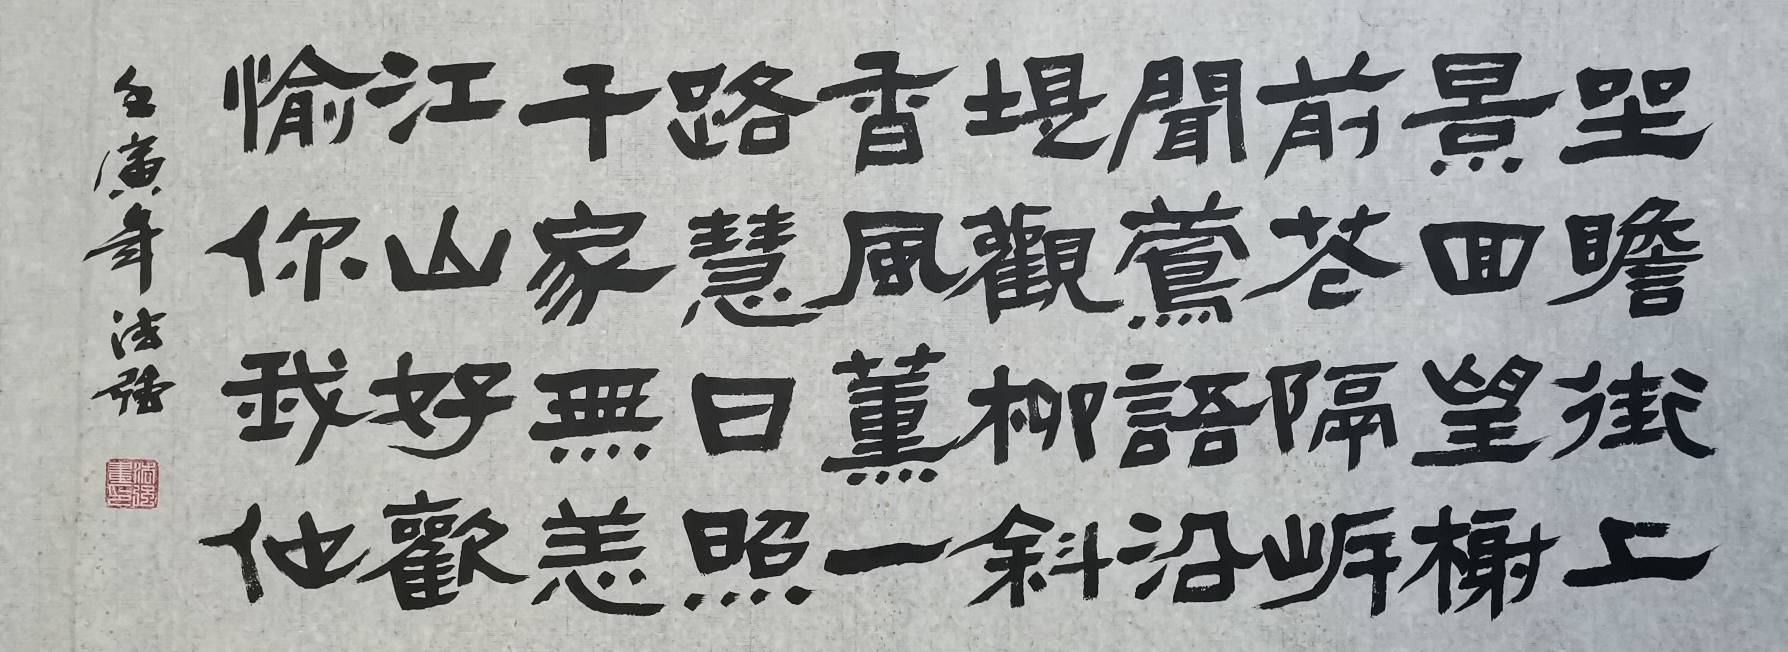 坐瞻街上
景回望榭
前花隔岸
聞鶯語沿
堤觀柳斜
香風薰一
路慧日照
千家無恙
江山好歡
愉你我他
壬寅年法強
法強書印